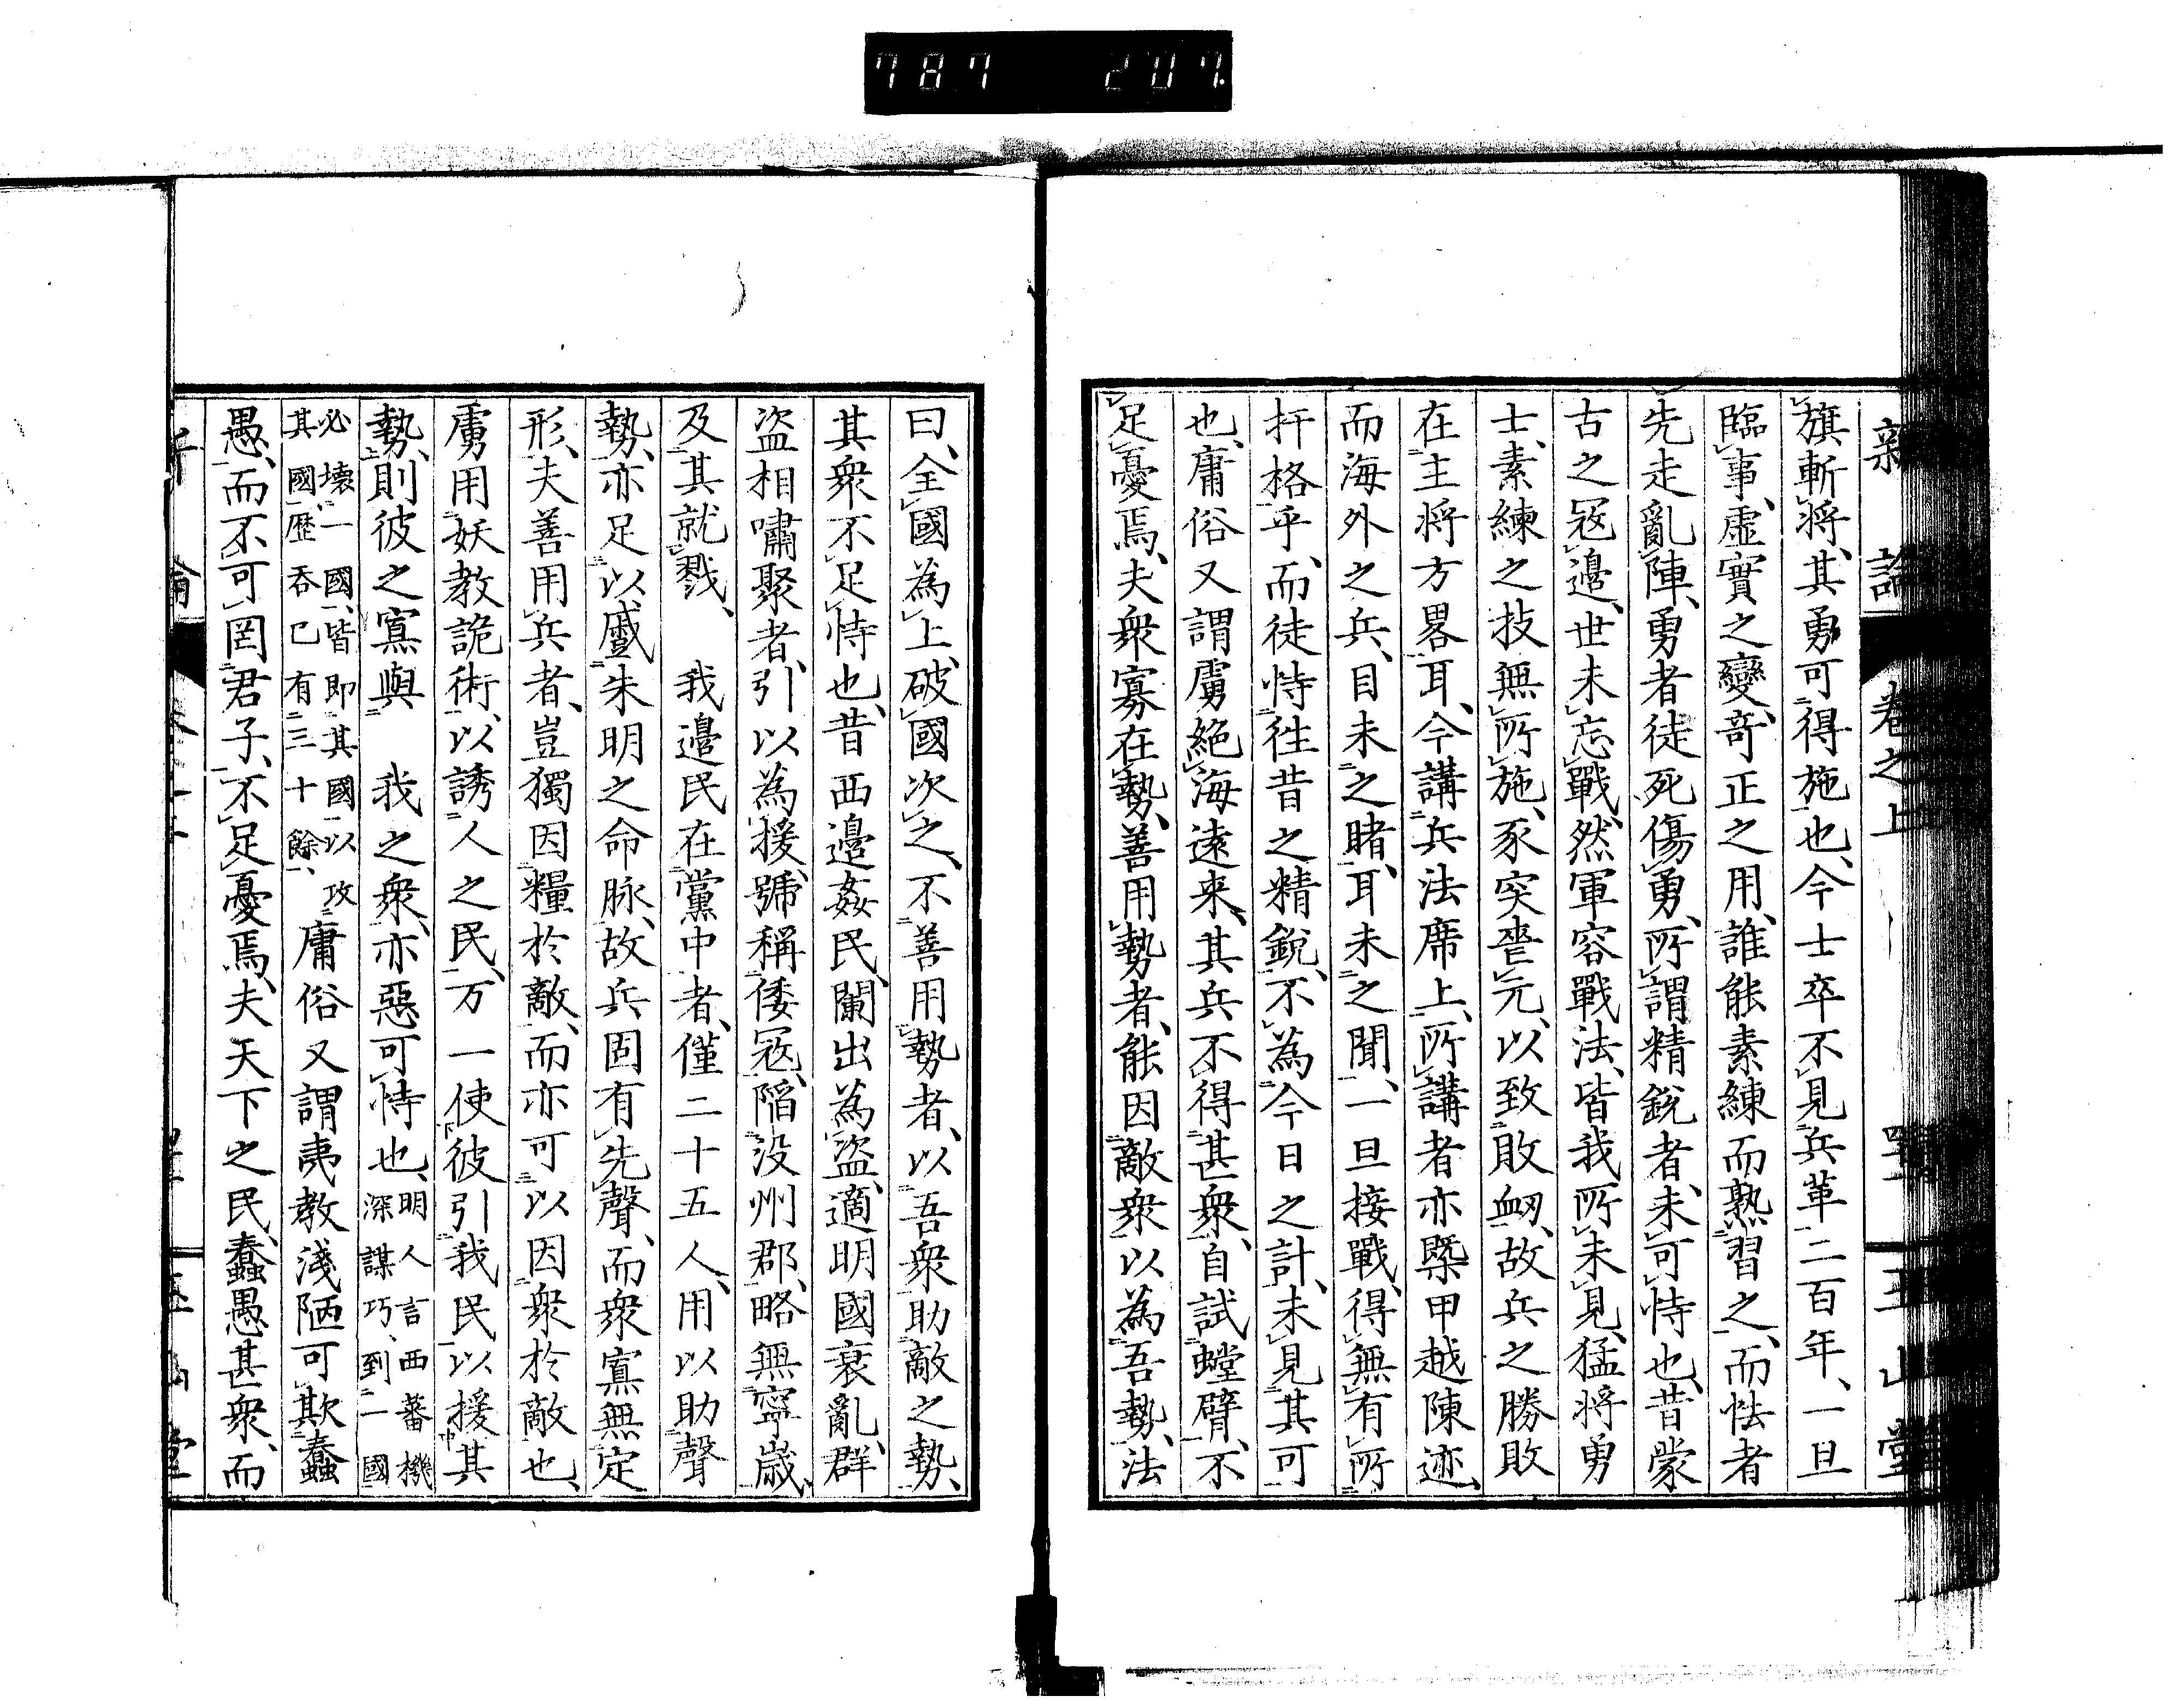 787 207.
新論 卷之上 玉山堂
旗斬將、其勇可得施也、今士卒不見兵革二百年、一旦
臨事、虛實之變、奇正之用、誰能素練而熟習之、而怯者
先走亂陣、勇者徒死傷勇、所謂精銳者、未可恃也、昔蒙
古之冦邊、世未忘戰、然軍容戰法、皆我所未見、猛將勇
士、素練之技、無所施、豕突喪元、以致敗衂、故兵之勝敗
在主將方畧耳、今講兵法席上、所講者亦槩甲越陳迹、
而海外之兵、目未之睹、耳未之聞、一旦接戰、得無有所
扞格乎、而徒恃徃昔之精銳、不為今日之計、未見其可
也、庸俗又謂虜絕海遠來、其兵不得甚衆、自試螳臂、不
足憂焉、夫衆寡在勢、善用勢者、能因敵衆以為吾勢、法
曰、全國為上、破國次之、不善用勢者、以吾衆助敵之勢、
其衆不足恃也、昔西邊姦民、闌出為盜、適明國衰亂、群
盜相嘯聚者、引以為援、號稱倭冦、陷沒州郡、略無寧歲、
及其就戮、 我邊民在黨中者、僅二十五人、用以助聲
勢、亦足以蹙朱明之命脉、故兵固有先聲、而衆寡無定
形、夫善用兵者、豈獨因糧於敵、而亦可以因衆於敵也、
虜用妖教詭術、以誘人之民、万一使彼引我民以援其
勢、則彼之寡與 我之衆、亦惡可恃也、明人言西蕃機
深謀巧、到一國
必壞一國、皆即其國以攻
其國、歷吞已有三十餘、庸俗又謂夷教淺陋可欺蠢
愚、而不可罔君子、不足憂焉、夫天下之民、蠢愚甚衆、而